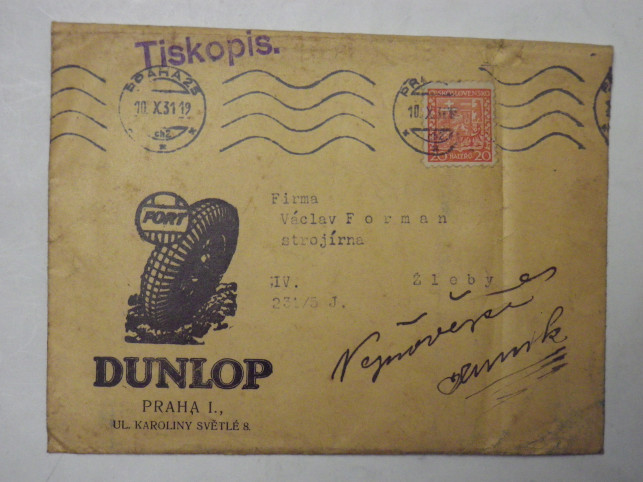 Tiskopis.
PRAHA 25
10.X.31 12
PRA
10.X.31
ČESKOSLOVENSKO
20 HALÉŘŮ 20
FORT
Firma
Václav Forman
strojírna
XV. Žleby
231/5 J.
DUNLOP
PRAHA I.,
UL. KAROLINY SVĚTLÉ 8.
Nejnovější